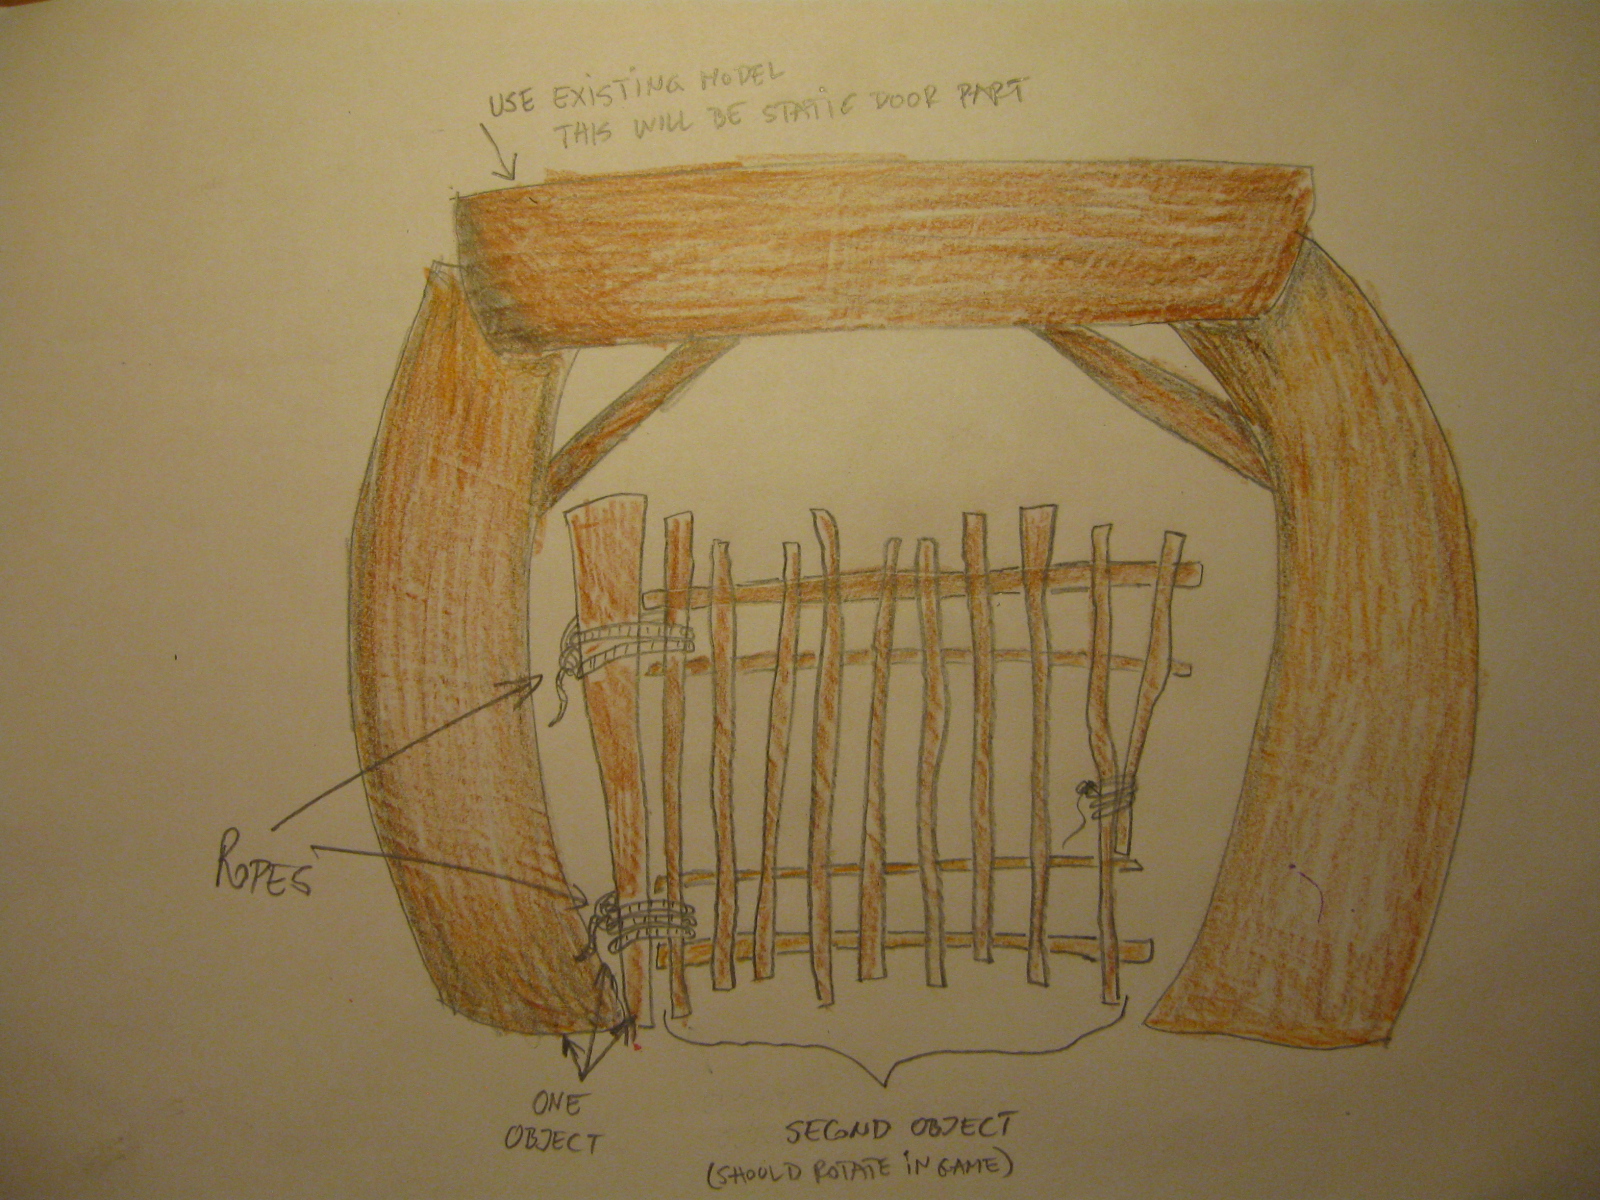 USE EXISTING MODEL
THIS WILL BE STATIC DOOR PART
ROPES
ONE
OBJECT
SECOND OBJECT
(SHOULD ROTATE IN GAME)